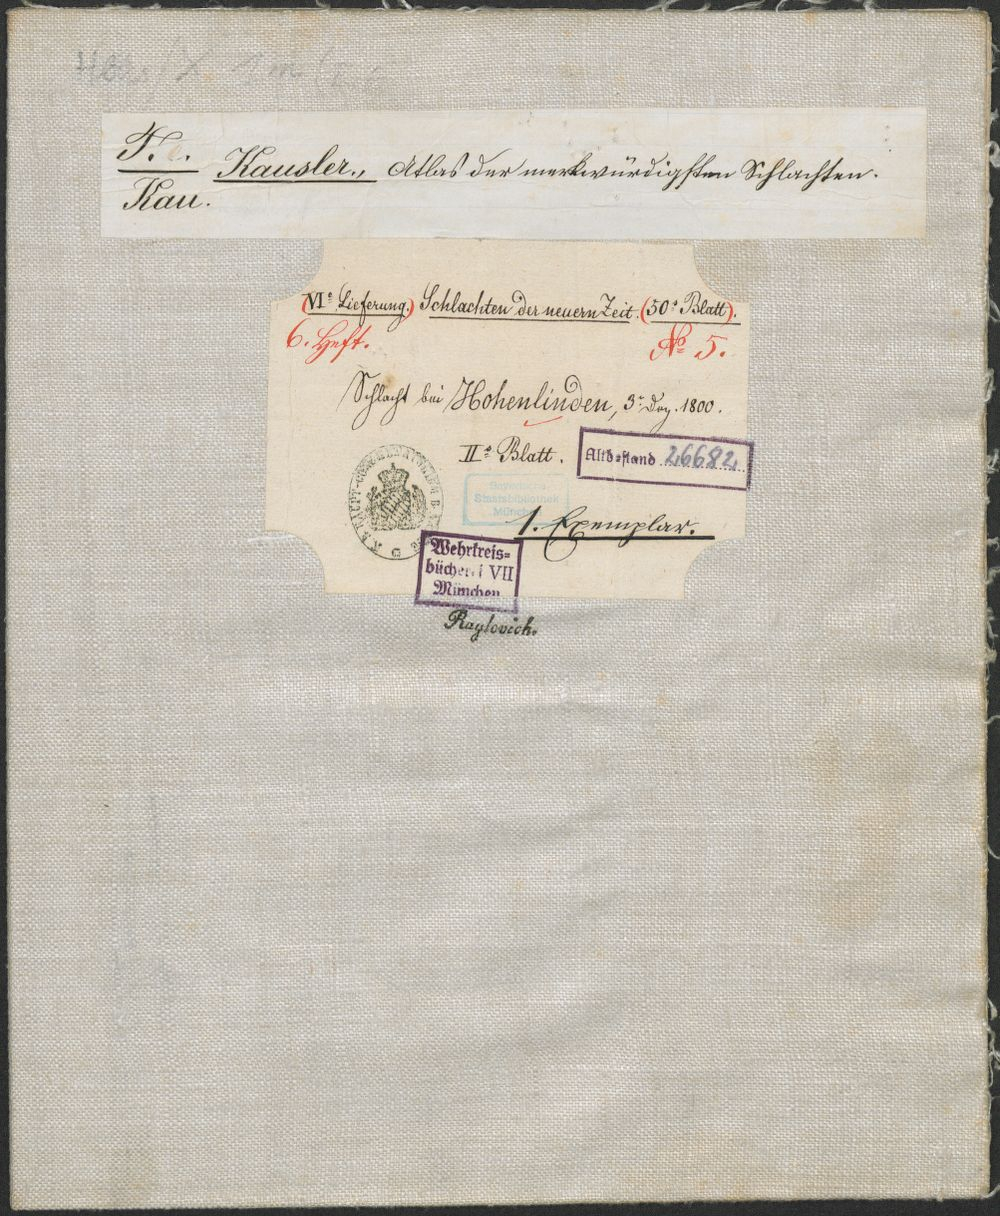 Kausler., Atlas der merkwürdigsten Schlachten.
Kau.
(VIe Lieferung.) Schlachten der neuern Zeit. (50s Blatt).
6. Heft. No 5.
Schlacht bei Hohenlinden, 3r Dez. 1800.
IIs Blatt.
Altbestand 26682
Bayerische
Staatsbibliothek
München
1. Exemplar.
Wehrkreis=
bücherei VII
München
Raglovich.